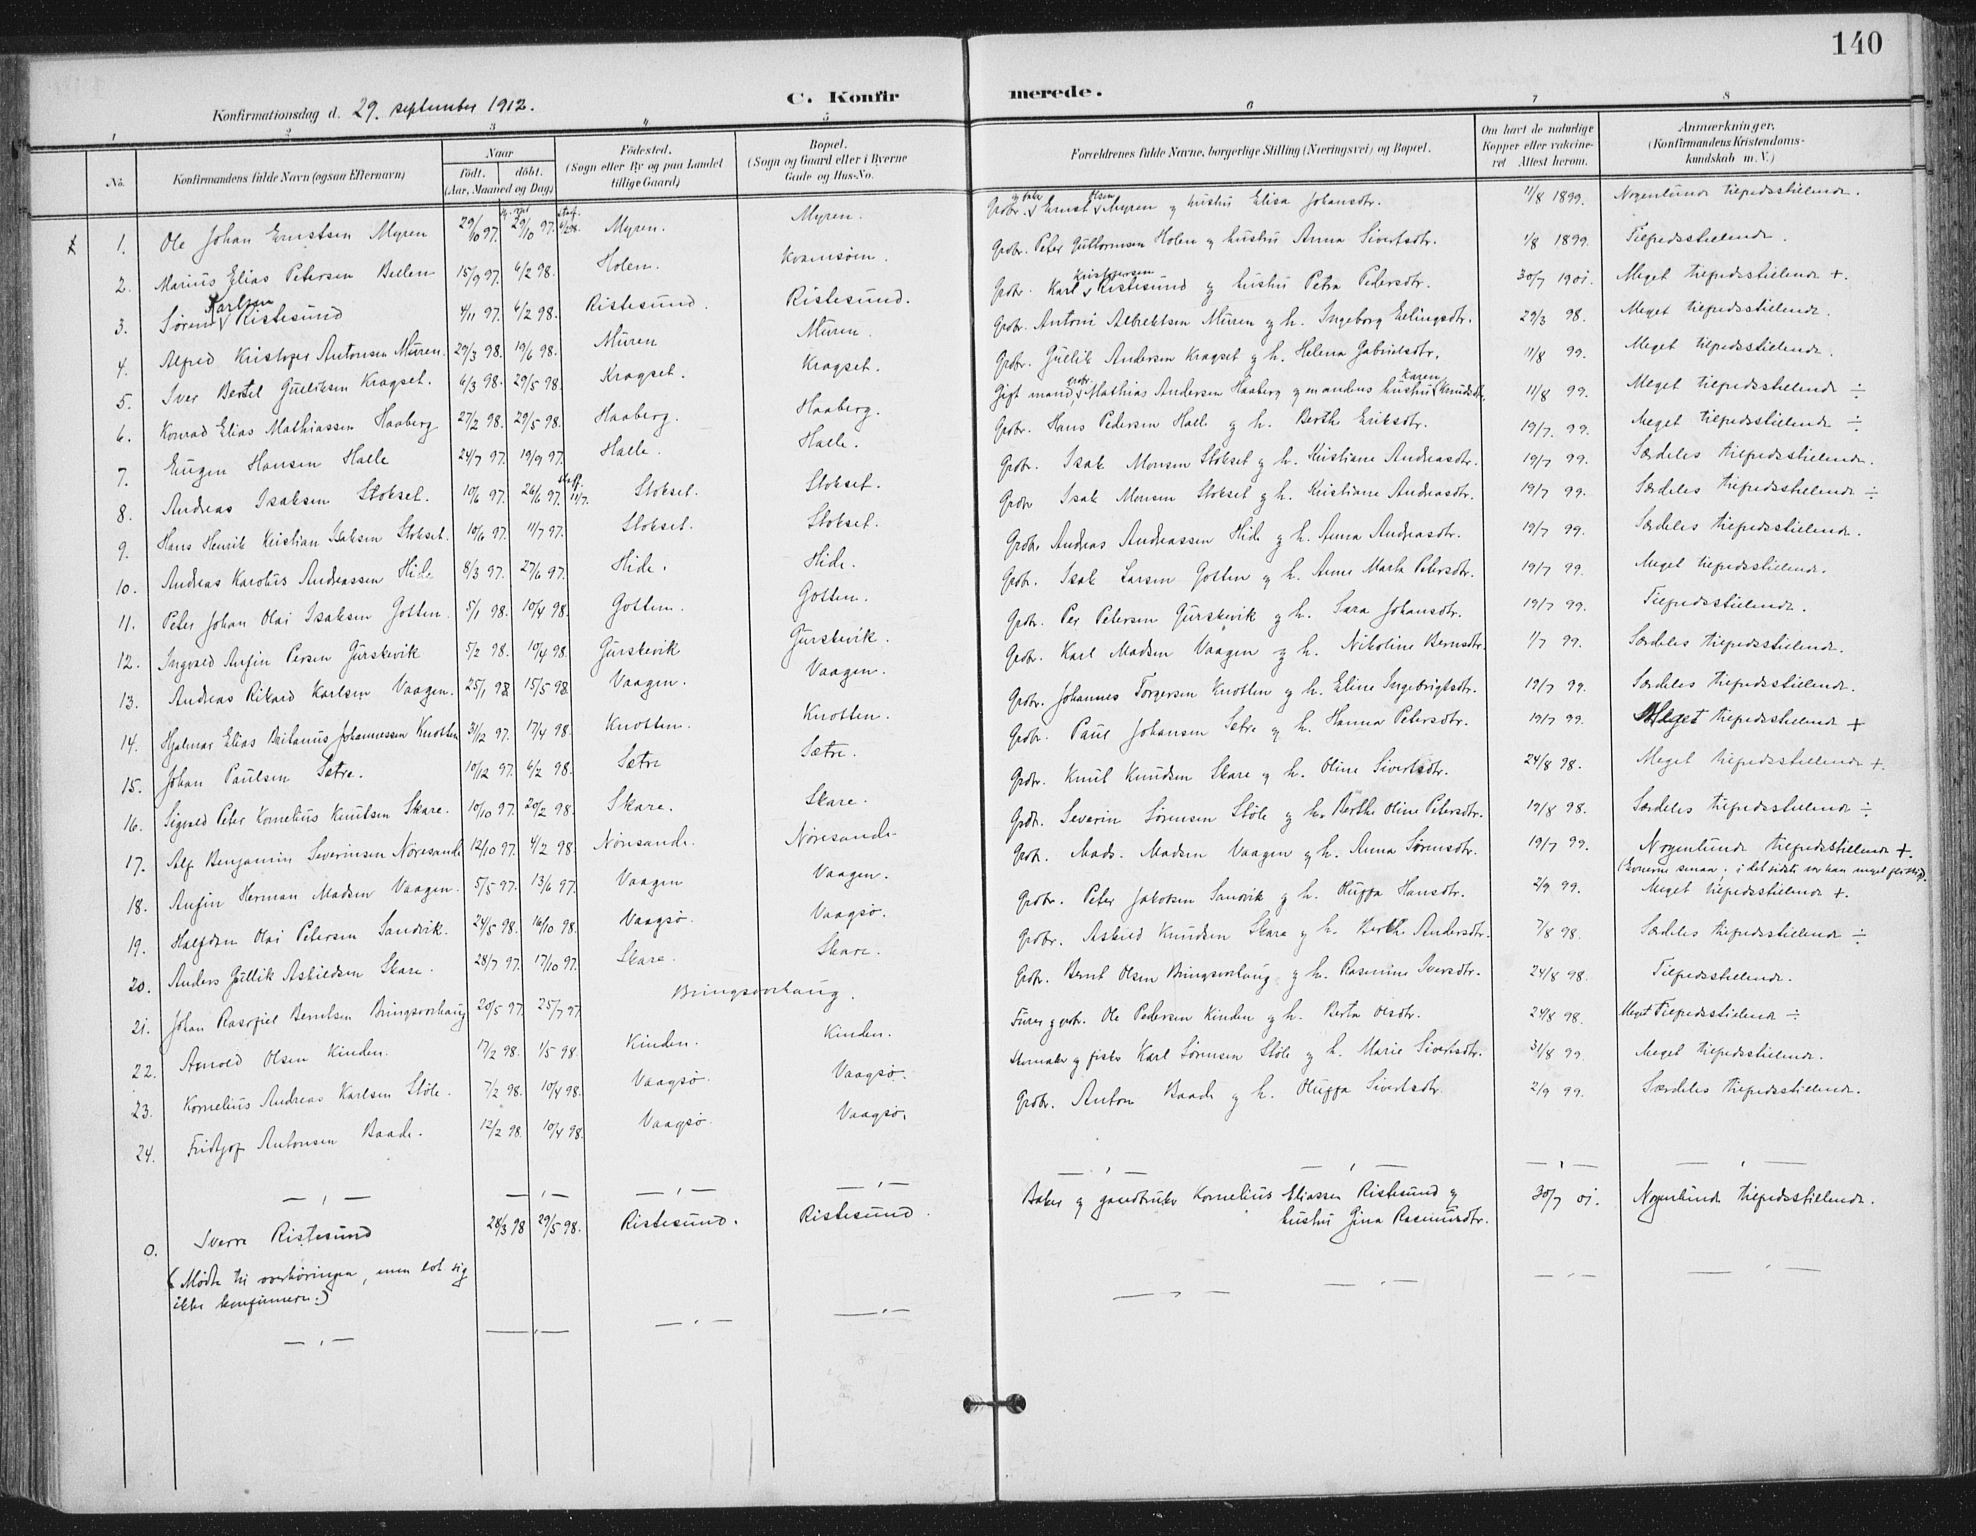 140
Konfirmationsdag d. 29. september 1912.
C. Konfir merede.
1 2 3 4 5 6 7 8
No. Konfirmandens fulde Navn (ogsaa Efternavn) Naar födt. döbt. (Aar, Maaned og Dag) Födested. (Sogn eller By og paa Landet tillige Gaard) Bopæl. (Sogn og Gaard eller i Byerne Gade og Hus-No. Forældrenes fulde Navne, borgerlige Stilling (Næringsvei) og Bopæl. Om havt de naturlige Kopper eller vakcineret Attest herom. Anmærkninger. (Konfirmandens Kristendomskundskab m. V.)
1. Ole Johan Ernstsen Myren 29/10 97. 29/10 97. Myren. Myren. Grdbr. Ernst Olsen Myren og hustru Elisa Johansdtr. 11/8 1899. Nogenlunde tilfredsstillende.
2. Marius Elias Petersen 15/9 97. 6/2 98. Holen. Kvamsöen. Grdbr. Peter Guttormsen Holen og hustru Anna Sivertsdtr. 1/8 1899. Tilfredsstillende.
3. Sören Karlsen Ristesund 4/11 97. 6/2 98. Ristesund. Ristesund. Grdbr. Karl Kristofersen Ristesund og hustru Petra Pedersdtr. 30/7 1901. Meget tilfredsstillende +.
4. Alfred Kristofer Antonsen Muren. 29/3 98. 19/6 98. Muren Muren. Grdbr. Antoni Albrektsen Muren og h. Ingeborg Erlingsdtr. 29/3 98. Meget tilfredsstillende.
5. Iver Bertil Gulliksen Kragset. 6/3 98. 29/5 98. Kragset. Kragset. Grdbr. Gullik Andersen Kragset og h. Helena Gabrielsdtr. 11/8 99. Meget tilfredsstillende.
6. Konrad Elias Mathiassen Haaberg 27/2 98. 29/5 98. Haaberg. Haaberg. Gift mand, grdbr. Mathias Andersen Haaberg og mandens hustru Karen Knudsdtr. 11/8 99. Meget tilfredsstillende ÷
7. Eugen Hansen Halle 24/7 97. 19/9 97. Halle. Halle. Grdbr. Hans Pedersen Halle og h. Berthe Eriksdtr. 19/7. 99. Meget tilfredsstillende ÷
8. Andreas Isaksen Stokset. 10/6 97. 26/6 97. Stokset. Stokset. Grdbr. Isak Monsen Stokset og h. Kristiane Andreasdtr. 19/7 99. Særdeles tilfredsstillende.
9. Hans Henrik Kristian Isaksen Stokset. 10/6 97. 11/7 97. Stokset. Stokset. Grdbr Isak Monsen Stokset og h. Kristiane Andreasdtr. 19/7 99. Særdeles tilfredsstillende ÷
10. Andreas Karolius Andreassen Hide 8/3 97. 27/6 97. Hide. Hide. Grdbr. Andreas Andreassen Hide og h. Anna Andreasdtr. 19/7 99. Særdeles tilfredsstillende.
11. Peter Johan Olai Isaksen Gotten. 5/1 98. 10/4 98. Gotten. Gotten. Grdbr. Isak Larsen Gotten og h. Anne Marta Petersdtr. 19/7 99. Meget tilfredsstillende.
12. Ingvald Anfin Persen Gurskevik 5/2 98. 10/4 98. Gurskevik Gurskevik. Grdbr. Per Petersen Gurskevik og h. Sara Johansdtr. 19/7 99. Tilfredsstillende.
13. Andreas Rikard Karlsen Vaagen. 25/1 98 15/5 98. Vaagen. Vaagen. Grdbr. Karl Madsen Vaagen og h. Nikoline Berntsdtr. 1/7 99. Særdeles tilfredsstillende.
14. Hjalmar Elias Johannessen Knotten 31/12 97. 17/4 98. Knotten. Knotten. Grdbr. Johannes Torgersen Knotten og h. Eline Ingebrigtsdtr. 19/7 99. Særdeles tilfredsstillende.
15. Johan Paulsen Sætre. 10/12 97. 6/2 98. Sætre Sætre. Grdbr. Paul Johansen Sætre og h. Hanna Petersdtr. 19/7 99. Meget tilfredsstillende +
16. Sigvald Peter Kornelius Knutsen Skare. 10/10 97. 20/2 98. Skare. Skare. Grdbr. Knut Knudsen Skare og h. Oline Sivertsdtr. 24/8 98. Meget tilfredsstillende +.
17. Alf Benjamin Severinsen Nöresande 12/10 97. 4/2 98. Nöresande. Nöresande Grdbr. Severin Sörensen Stöle og h. Berthe Oline Petersdtr. 19/8 98. Særdeles tilfredsstillende ÷
18. Anfin Herman Madsen Vaagen. 5/5 97. 13/6 97. Vaagen Vaagen. Grdbr. Mads. Madsen Vaagen og h. Anna Sörensdtr. 19/7 99. Nogenlunde tilfredsstillende +.
(Evnerne smaa; i det sidste var han meget flittig).
19. Halfdan Olai Petersen Sandvik. 24/5 98. 16/10 98. Vaagsö Vaagsö. Grdbr. Peter Jakobsen Sandvik og h. Oluffa Hansdtr. 2/9 99. Meget tilfredsstillende +.
20. Anders Gullik Askildsen Skare. 28/7 97. 17/10 97. Skare. Skare. Grdbr. Askild Knudsen Skare og h. Berthe Andersdtr. 7/8 98. Særdeles tilfredsstillende ÷
21. Johan Rasofiel Berntsen Bringsvorhaug 20/5 97. 25/7 97. Bringsvorhaug. Grdbr. Bernt Olsen Bringsvorhaug og h. Rasmine Iversdtr. 24/8 98. Tilfredsstillende.
22. Arnold Olsen Kinden. 17/2 98. 1/5 98. Kinden. Kinden. Furer og grdbr. Ole Pedersen Kinden og h. Berta Olsdtr. 24/8 98. Meget Tilfredsstillende ÷
23. Kornelius Andreas Karlsen Stöle. 7/2 98. 10/4 98. Vaagsö. Vaagsö. Skomaker og fisker Karl Sörensen Stöle og h. Marie Sivertsdtr. 31/8 99. Meget tilfredsstillende.
24. Fridtjof Antonsen Baade. 12/2 98. 10/4 98. Vaagsö. Vaagsö. Grdbr. Anton Baade og h. Oluffa Sivertsdtr. 2/9 99. Særdeles tilfredsstillende.
0. Sverre Ristesund 28/3 98 29/5 98. Ristesund. Ristesund. Baker og gaardbruker Kornelius Eliassen Ristesund og hustru Gina Rasmusdtr. 30/7 01. Nogenlunde tilfredsstillende.
(Mödte til overhöringen, men lot sig
ikke konfirmere.)